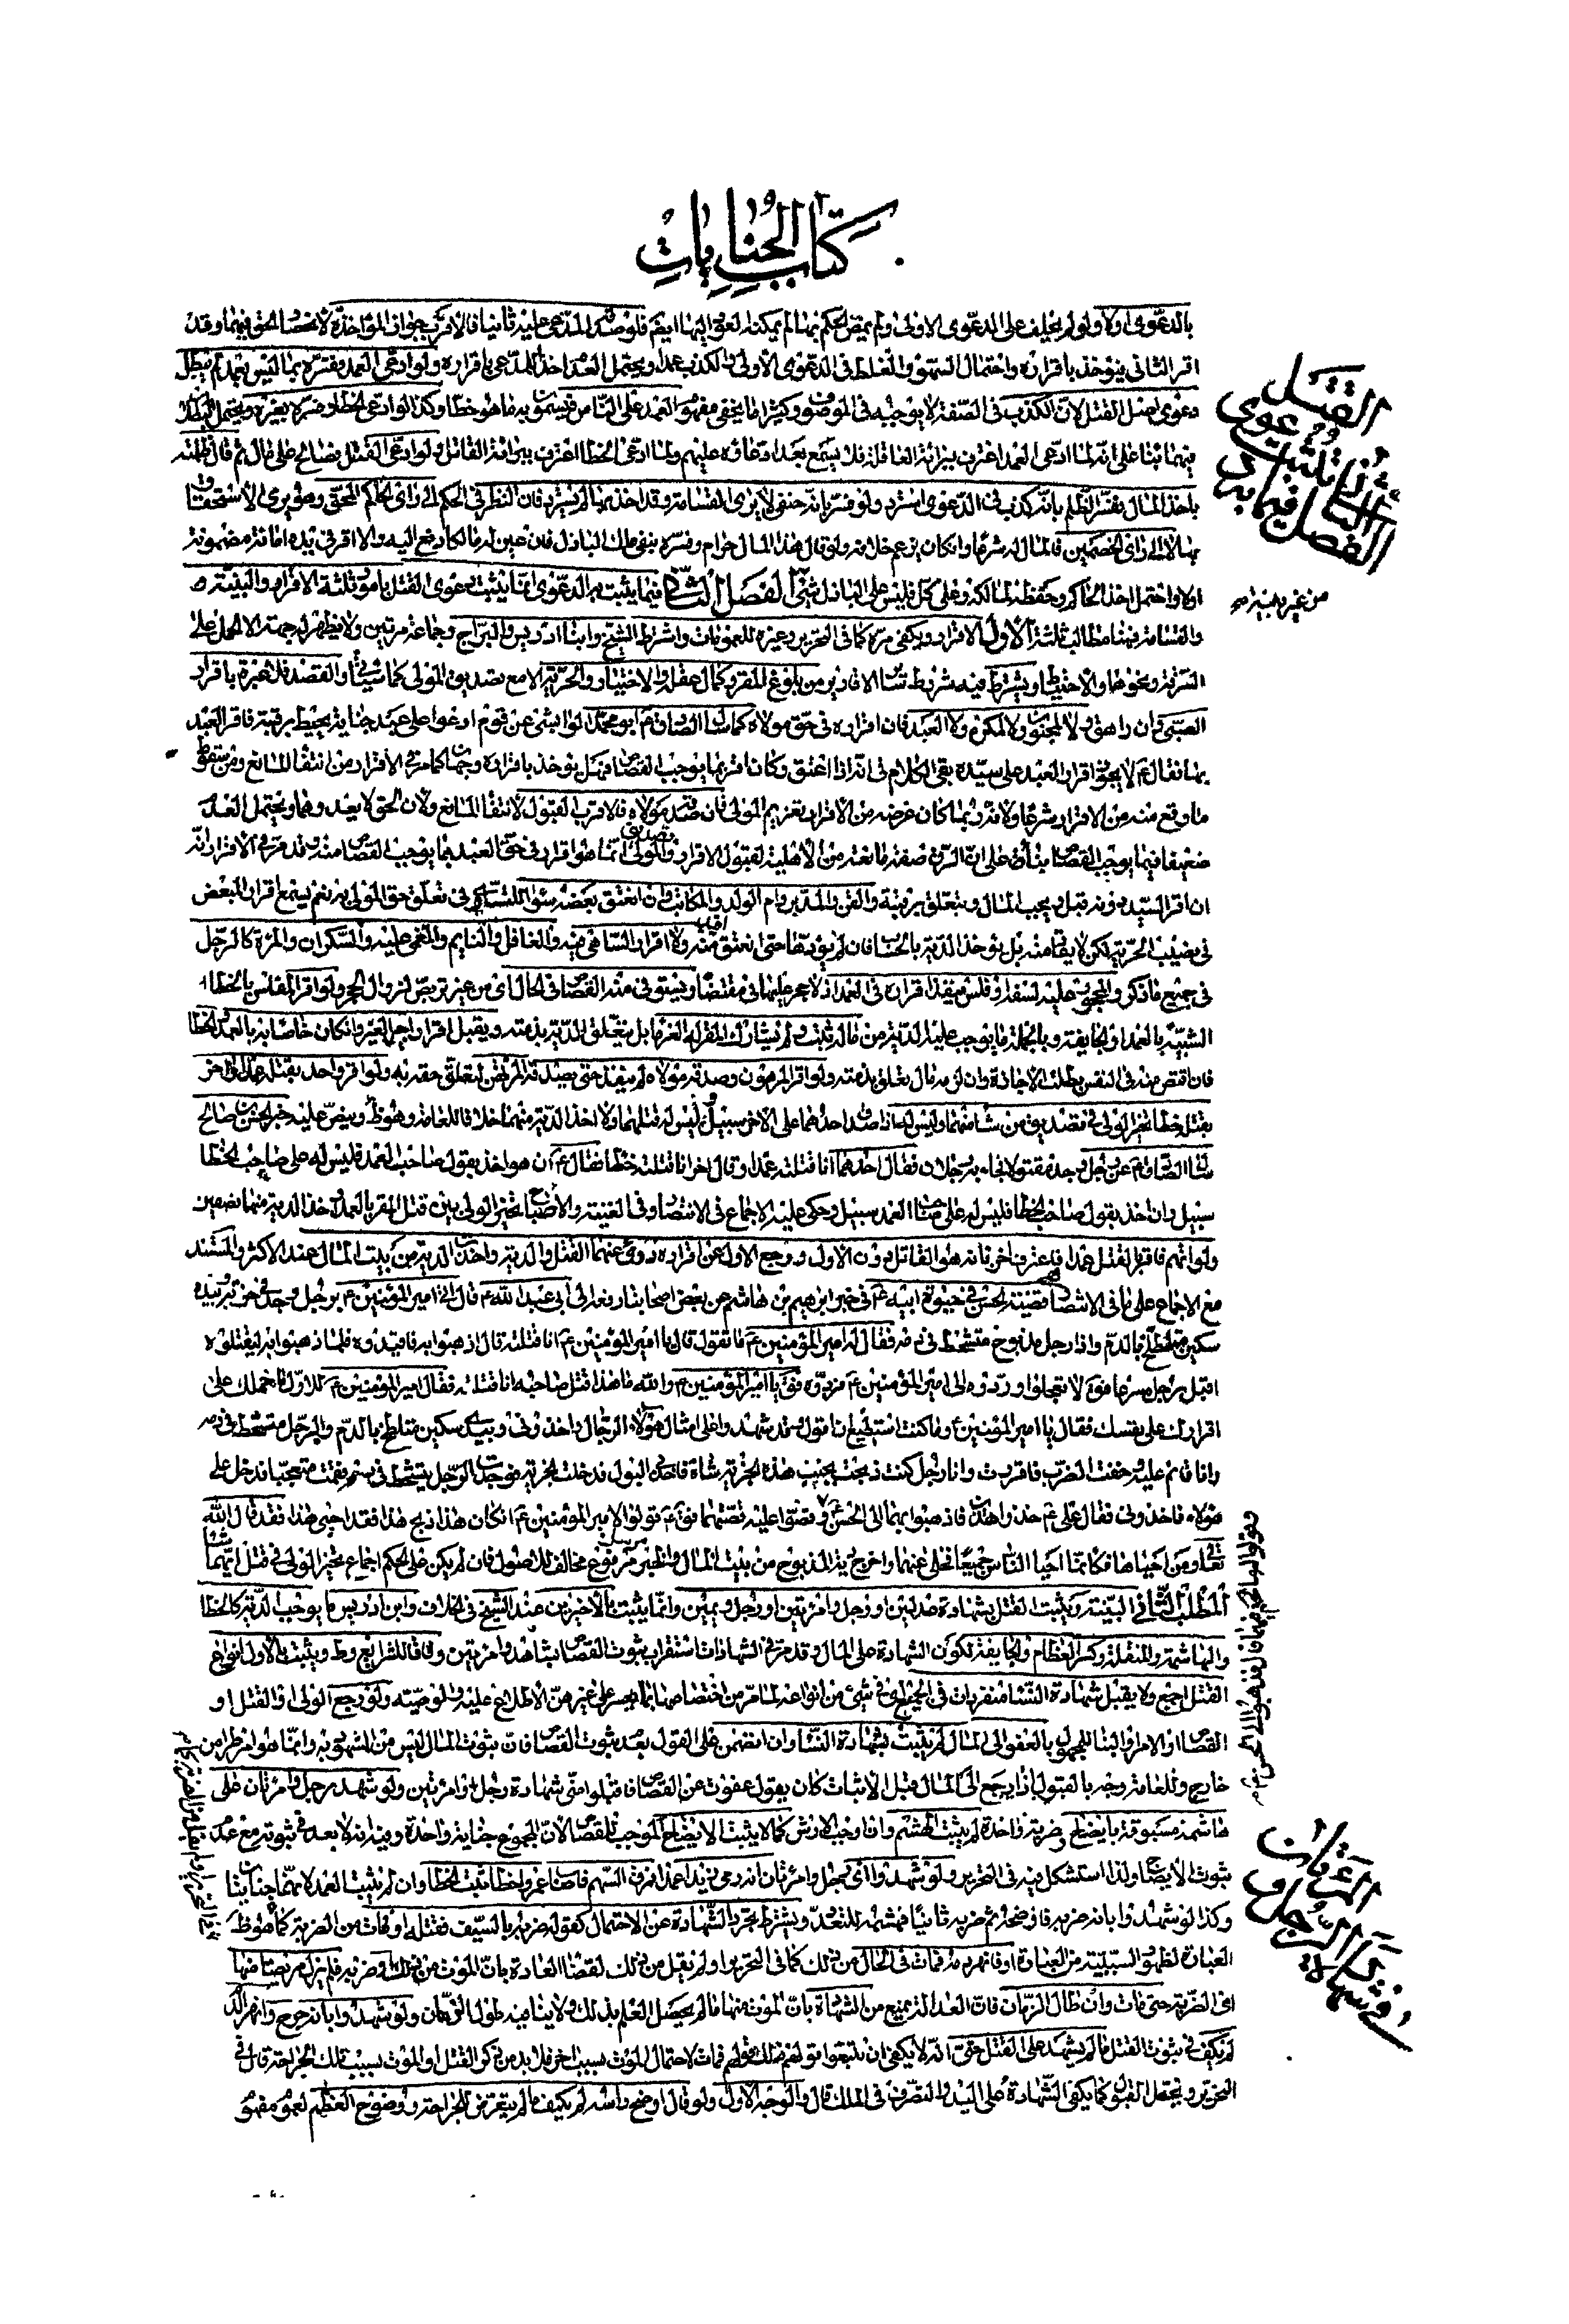 كتاب الجنايات
بالدعوى اولا ولو لم يحلف على الدعوى الاولى ولم يمض الحكم بها لم يمكنه العود اليها ايضا فلو صدقه المدعى عليه ثانيا فالاقرب جواز المؤاخذة لانحصار الحق فيهما وقد
اقر الثاني فيؤخذ باقراره واحتمال السهو والغلط في الدعوى الاولى والكذب عمدا ويحتمل العدم اخذا للمدعى باقراره ولو ادعى العمد وفسره بما ليس بعمد لم يبطل
دعوى اصل القتل لان الكذب في الصفة لا يوجبه في الموصوف وكثيرا ما يخفى مفهوم العمد على الناس فيسمون به ما هو خطا وكذا لو ادعى الخطا وفسره بغيره ويحتمل البطلان
فيهما بناء على انه لما ادعى العمد اعترف ببراءة العاقلة فلا يسمع بعد ادعاؤه عليهم ولما ادعى الخطا اعترف ببراءة القاتل ولو ادعى القتل فصالح على مال ثم قال ظلمته
باخذ المال وفسر الظلم بانه كذب في الدعوى استرد ولو فسر بانه حنفي لا يرى القسامة وقد اخذ بها لم يسترد فان النظر في الحكم الى راى الحاكم المحق وهو يرى الاستحقاق
بها لا الى راى الخصمين فالمال له شرعا وان كان يزعم خلافه ولو قال هذا المال حرام وفسره بنفي ملك الباذل فان عين له مالكا دفع اليه والا اقر في يده امانة مضمونة
اولا واحتمل اخذ الحاكم وحفظه لمالكه وعلى كل فليس على الباذل شيء الفصل الثاني فيما يثبت به الدعوى انما يثبت دعوى القتل بامور ثلثة الاقرار والبينة
والقسامة فهنا مطالب ثلثة الاول الاقرار ويكفي مرة كما في التحرير وغيره للعمومات واشترط الشيخ وابنا ادريس والبراج وجماعة مرتين ولا يظهر له جهة الا الحمل على
السرقة ونحوها والاحتياط ويشترط فيه شروط سائر الاقارير من بلوغ المقر وكمال عقله والاختيار والحرية الا مع تصديق المولى كما سيأتي والقصد فلا عبرة باقرار
الصبي وان راهق ولا المجنون ولا المكره ولا العبد فان اقراره في حق مولاه كما سال الصادق ع ابو محمد الوابشي عن قوم ادعوا على عبد جناية يحيط برقبته فاقر العبد
بها فقال ع لا يجوز اقرار العبد على سيده بقى الكلام في انه اذا اعتق وكان اقر بما يوجب القصاص فهل يؤخذ باقراره وجهان كما مر في الاقرار من انتفاء المانع ومن سقوط
ما وقع منه من الاقرار شرعا ولانه ربما كان غرضه من الاقرار تغريم المولى فان صدقه مولاه فالاقرب القبول لانتفاء المانع ولان الحق لا يعدوهما ويحتمل العدم
ضعيفا فيما يوجب القصاص بناء على ان الرق صفة مانعة من الاهلية لقبول الاقرار وتصديق المولى انما هو اقرار في حق العبد بما يوجب القصاص منه وقد مر في الاقرار انه
ان اقر السيد دونه قبل ويجب المال ويتعلق برقبته والقن والمدبر وام الولد والمكاتب وان انعتق بعضه سواء للتساوي في تعلق حق المولى به نعم يسمع اقرار المبعض
في نصيب الحرية لكن لا يقاد منه بل يؤخذ الدية بالحساب فان لم يؤدها حتى انعتق اقيد منه ولا اقرار الساهي فيه والغافل والنايم والمغمى عليه والسكران والمراة كالرجل
في جميع ما ذكر والمحجور عليه لسفه او فلس ينفذ اقراره في العمد اذ لا حجر عليهما في مقتضاه ويستوفى منه القصاص في الحال اى من غير تربص لزوال الحجر ولو اقر المفلس بالخطا
الشبيه بالعمد او الجايفة وبالجملة ما يوجب عليه الدية من ماله ثبت ولم يشارك المقر له الغرماء بل يتعلق الدية بذمته ويقبل اقرار اجير الغير وان كان خاصا به بالعمد والخطا
فان اقتص منه في النفس بطلت الاجازة وان لزمه مال تعلق بذمته ولو اقر المرهون وصدقه مولاه لم ينفذ حتى يصدقه المرتهن لتعلق حقه به ولو اقر واحد بقتله عمدا واخر
بقتله خطا تخير الولي في تصديق من شاء منهما وليس له اذا صدق احدهما على الاخر سبيل وليس له قتلهما ولا اخذ الدية منهما خلافا للعامة وهو ظ وينص عليه خبر الحسن بن صالح
سال الصادق ع عن رجل وجد مقتولا فجاء به رجلان فقال احدهما انا قتلته عمدا وقال اخر انا قتلته خطا فقال ع ان هو اخذ بقول صاحب العمد فليس له على صاحب الخطا
سبيل وان اخذ بقول صاحب الخطا فليس له على صاحب العمد سبيل وحكي عليه الاجماع في الانتصار وفي الغنية والاصباح تخير الولي بين قتل المقر بالعمد واخذ الدية منهما نصفين
ولو اتهم فاقر بالقتل عمدا فاعترف اخر فانه هو القاتل دون الاول ورجع الاول عن اقراره درئ عنهما القتل والدية واخذت الدية من بيت المال عند الاكثر والمستند
مع الاجماع على ما في الانتصار قضية الحسن في حيوة ابيه ع في خبر ابرهيم بن هاشم عن بعض اصحابنا رفعه الى ابي عبد الله ع قال اتى امير المؤمنين ع برجل وجد في خربة وبيده
سكين متلطخ بالدم واذا رجل مذبوح متشحط في دمه فقال له امير المؤمنين ع ما تقول قال يا امير المؤمنين ع انا قتلته قال اذهبوا به فاقيدوه فلما ذهبوا به ليقتلوه
اقبل رجل مسرعا فقال لا تعجلوا وردوه الى امير المؤمنين ع فردوه فقال يا امير المؤمنين ع والله ما هذا قتل صاحبه انا قتلته فقال امير المؤمنين ع للاول ما حملك على
اقرارك على نفسك فقال يا امير المؤمنين ع وما كنت استطيع ان اقول وقد شهد على امثال هؤلاء الرجال واخذوني وبيدي سكين متلطخ بالدم والرجل متشحط في دمه
وانا قائم عليه وخفت الضرب فاقررت وانا رجل كنت ذبحت بجنب هذه الخربة شاة فاخذني البول فدخلت الخربة فوجدت الرجل يتشحط في دمه فقمت متعجبا فدخل على
هؤلاء فاخذوني فقال على ع خذوا هذين فاذهبوا بهما الى الحسن ع وقصوا عليه قصتهما فق ع قولوا لامير المؤمنين ع ان كان هذا ذبح هذا فقد احيى هذا فقد قال الله
تعالى ومن احياها فكانما احيا الناس جميعا فخلى عنهما واخرج دية المذبوح من بيت المال والخبر مرسل مرفوع مخالف للاصول فان لم يكن على الحكم اجماع تخير الولي في قتل ايهما شاء
المطلب الثاني البينة ويثبت القتل بشهادة عدلين او رجل وامراتين او رجل ويمين وانما يثبت بالاخيرين عند الشيخ في الخلاف وابن ادريس ما يوجب الدية كالخطا
والهاشمة والمنقلة وكسر العظام والجايفة لكون الشهادة على المال وقد مر في الشهادات استقراب ثبوت القصاص بشاهد وامراتين وفاقا للشرايع وط ويثبت بالاول انواع
القتل اجمع ولا يقبل شهادة النساء منفردات في الجميع اى في شيء من انواعه لما مر من اختصاصها بما يعسر على غيرهن الاطلاع عليه والوصية ولو رجع الولي في القتل او
القصاص او الامر والبناء للمجهول بالعفو الى المال لم يثبت بشهادة النساء وان انضممن على القول بعدم ثبوت القصاص فان ثبوت المال ليس من المشهود به وانما هو امر طرا من
خارج وللعامة وجه بالقبول اذا رجع الى المال قبل الاثبات كان يقول عفوت عن القصاص فاقبلوا مني شهادة رجل وامرئتين ولو شهد رجل وامرئتان على
هاشمة مسبوقة بايضاح وضربة واحدة لم يثبت الهشم وانما وجب الارش كما لا يثبت الايضاح الموجب للقصاص لان المجموع جناية واحدة وفيه انه لا بعد في ثبوته مع عدم
ثبوت الايضاح ولذا استشكل فيه في التحرير ولو شهدوا اى رجل وامرئتان انه رمى زيدا عمدا فمرق السهم فاصاب عمروا خطا ثبت الخطا وان لم يثبت العمد لانهما جنايتان
وكذا لو شهدوا بانه ضربه فاوضحه ثم ضربه ثانيا فهشمه للتعدد ويشترط تجرد الشهادة عن الاحتمال كقوله ضربه بالسيف فقتله او فمات من الضربة كما هو ظ
العبارة لظهور السببية من العبارة او فانهر دمه فمات في الحال من ذلك كما في التحرير او لم يقبل من ذلك لقضاء العادة بان الموت من ذلك او ضربه فلم يزل مريضا منها
اى الضربة حتى مات وان طال الزمان فان العدالة تمنع من الشهادة بان الموت منها ما لم يحصل العلم بذلك ولا ينافيه طول الزمان ولو شهدوا بانه جرح وانهر الدم
لم يكف في ثبوت القتل ما لم يشهد على القتل حتى انه لا يكفي ان يتبعوا قولهم ذلك بقولهم فمات لاحتمال الموت بسبب اخر فلا بد من ذكر القتل او الموت بسبب تلك الجراحة قال في
التحرير ويحتمل القبول كما يكفي الشهادة على اليد والتصرف في الملك قال والوجه الاول ولو قال اوضح راسه لم يكف ما لم يتعرض للجراحة ووضوح العظم لعموم مفهوم
الفصل الثاني فيما يثبت به دعوى القتل
من غير بينة
في شهادة الرجل والمرئتان